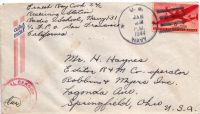 Ernest Ray Cook S 2/c
Receiving Station
Radio School, Navy 131
c/o F.P.O. San Francisco
California
U.S.
JAN
1944
NAVY
Mr. H. Haynes
Editor R & M Co-operator
Robbins & Myers Inc.
Lagonda Ave
Springfield, Ohio
U.S.A.